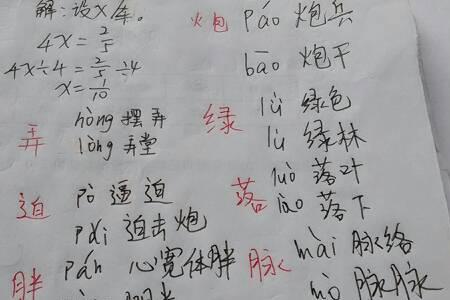 解：设X年。
4X=2/5
4X÷4=2/5÷4
X=1/10
弄 nòng 摆弄
lòng 弄堂
迫 pò 逼迫
pǎi 迫击炮
胖 pán 心宽体胖
炮 páo 炮兵
bāo 炮干
绿 lǜ 绿色
lù 绿林
落 luò 落叶
lào 落下
脉 mài 脉络
mò 脉脉